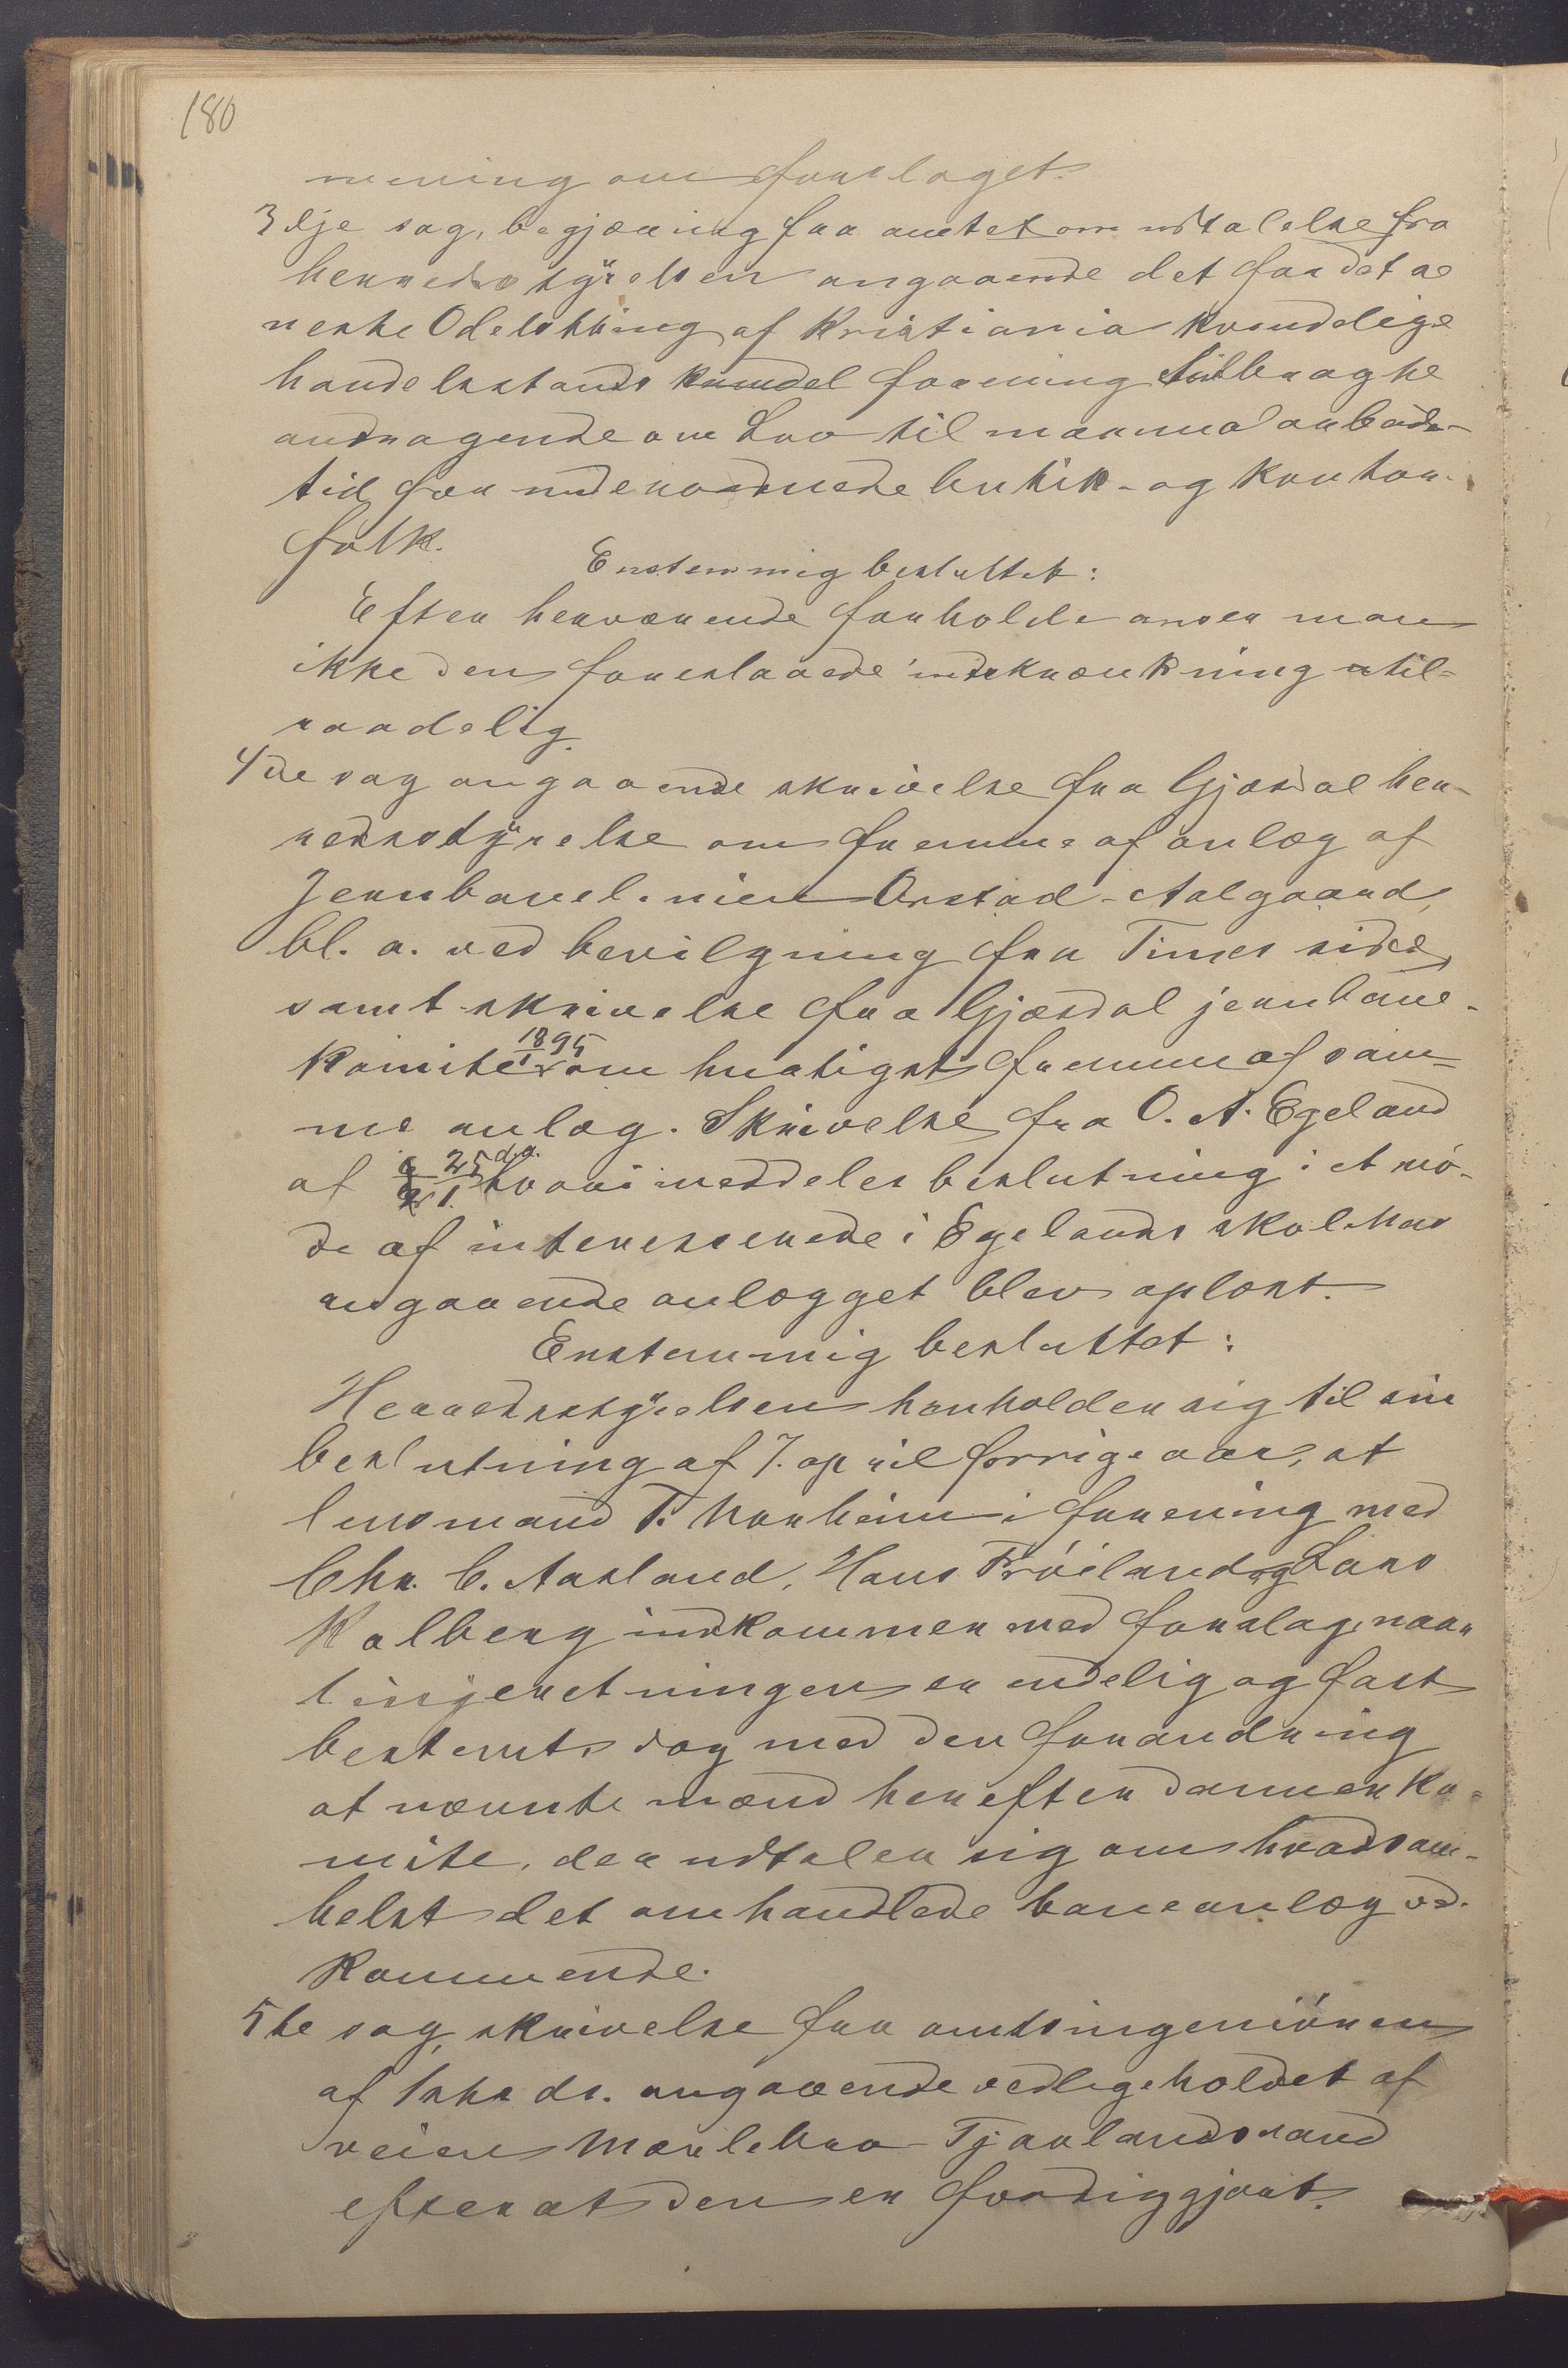 180
mening om forslaget.
3dje sag, begjæring fra amtet om udtalelse fra
herredsstyrelsen angaaende det for det se
neste Odelsthing af Kristiania kvindelige
handelsstands kvindel forening indbragte
andragende om Lov til maximalarbeids-
tid for underordnede butik- og kontor-
folk.
Enstemmig besluttet:
Efter herværende forholde anser man
ikke den foreslaaede indskrænkning til-
raadelig.
4de sag angaaende skrivelse fra Gjæsdal her-
redsstyrelse om fremme af anlæg af
Jernbanelinien Orstad-Aalgaard,
bl. a. ved bevilgning fra Times side,
samt skrivelse fra Gjæsdal jernbane-
komite 1895 om hurtigst fremme af sam-
me anlæg. Skrivelse fra O. A. Egeland
af 25/1 d.a. hvori meddeles beslutning i et mö-
de af interesserede i Egelands skolehus
angaaende anlægget blev oplæst.
Enstemmig besluttet:
Herredsstyrelsen henholder sig til sin
beslutning af 7. april forrige aar, at
lensmand T. Norheim i forening med
Chr. C. Aasland, Hans Fröiland og Lars
Kalberg indkommer med forslag, naar
linjeretningen er endelig og fast
bestemt, dog med den forandring
at nævnte mænd herefter danner ko-
mite, der udtaler sig om hvadsom-
helst det omhandlede baneanlæg ved-
kommende.
5te sag, skrivelse fra amtsingeniören
af ds. angaaende vedligeholdet af
veien Mælebro-Tjaalandsvand
efterat den er færdiggjort.